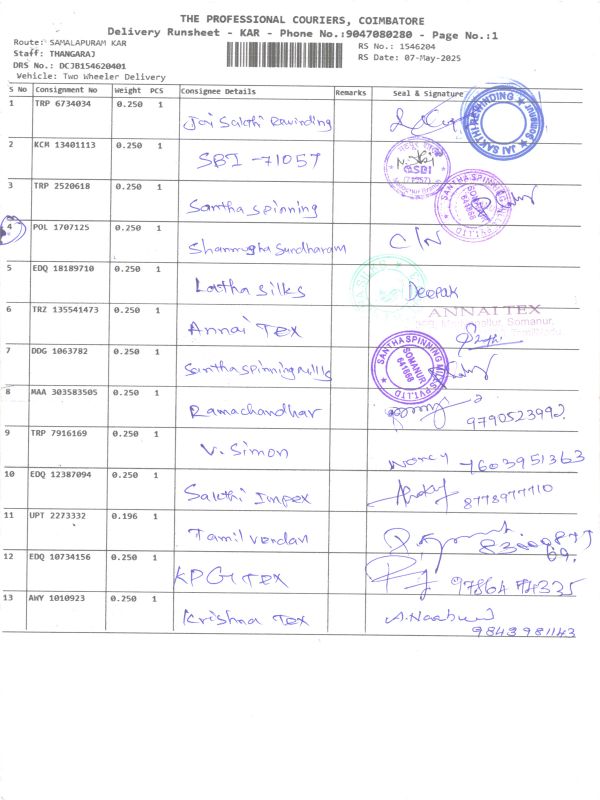 THE PROFESSIONAL COURIERS, COIMBATORE
Delivery Runsheet - KAR - Phone No.:9047080280 - Page No.:1
Route: SAMALAPURAM KAR
RS No.: 1546204
Staff: THANGARAJ
RS Date: 07-May-2025
DRS No.: DCJB154620401
Vehicle: Two Wheeler Delivery
S No Consignment No Weight PCS Consignee Details Remarks Seal & Signature
1 TRP 6734034 0.250 1 Jai Sakthi Rewinding
JAI SAKTHI REWINDING
2 KCM 13401113 0.250 1 SBI -71057
SBI
3 TRP 2520618 0.250 1 Santha spinning
SANTHA SPINNING MILLS PVT.LTD
SOMANUR
641668
4 POL 1707125 0.250 1 Shanmugha Sundharam C/N
5 EDQ 18189710 0.250 1 Latha Silks Deepak
6 TRZ 135541473 0.250 1 Annai Tex
ANNAI TEX
Somanur,
7 DDG 1063782 0.250 1 Santha spinning mills
SANTHA SPINNING MILLS PVT.LTD
SOMANUR
641668
8 MAA 303583505 0.250 1 Ramachandhar
9790523992.
9 TRP 7916169 0.250 1 V. Simon
7603951363
10 EDQ 12387094 0.250 1 Sakthi Impex 8778977710
11 UPT 2273332 0.196 1 Tamil vendan
12 EDQ 10734156 0.250 1 KPG Tex
13 AWY 1010923 0.250 1 Krishna Tex
9843981143